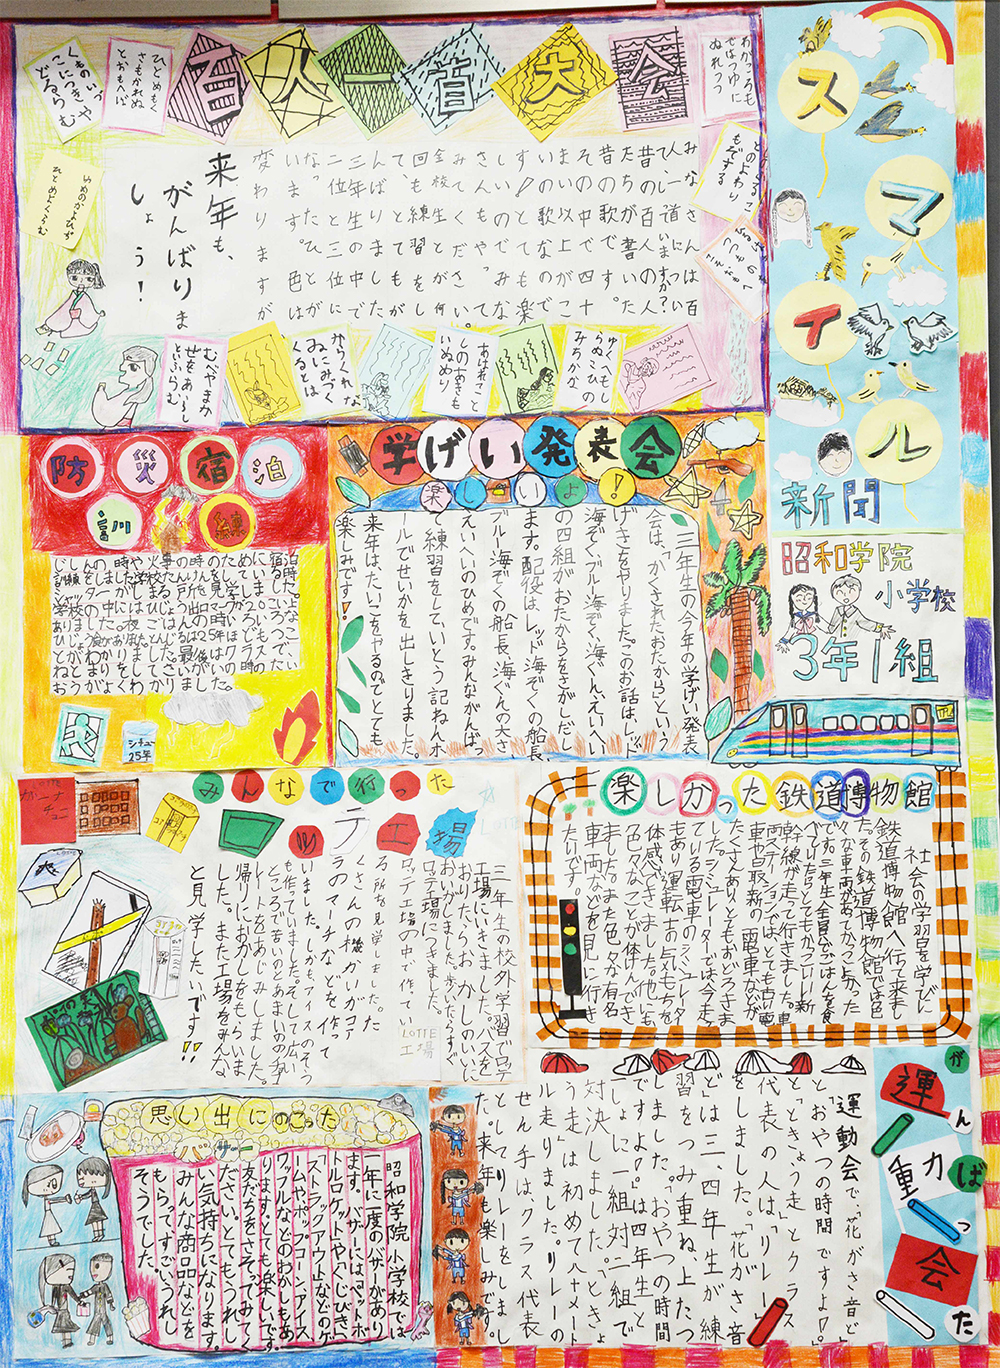 スマイル
新聞
昭和学院
小学校
3年1組
百人一首大会
わがころも
ではつゆに
ぬれつつ
ひとめもく
さもかれぬ
とおもへば
みなさんは百
昔の百人の人
たちが書いた
昔の歌です。
その中で四十
まい以上がこ
いの歌なので
す!とても楽
しいのでみな
さんもやって
みてください。
回も練習をし
て、とてもが
んばりました
三年生の中で
変わりますが
来年も、
がんばりま
しょう!
ゆくへもし
らぬこひの
みちかな
あはれことし
のあきも
いぬめり
むべやまか
ぜをあらし
といふらむ
学げい発表会
楽しいよ!
三年生の今年の学げい発表
会は、「かくされたおたから」という
げきをやりました。このお話は、レッド
海ぞく、ブルー海ぞく、海ぐん、えいへい
の四組がおたからをさがしだし
ます。配役は、レッド海ぞくの船長、
ブルー海ぞくの船長、海ぐんの大さ
えいへいのひめです。みんながんばっ
て練習をしていとう記ねんホ
ールでせいかを出しきりました。
来年は、たいこをやるのでとても
楽しみです!
防災宿泊
訓練
じしんの時や火事の時のために宿泊
訓練をしました。
学校の中にはひじょう出口マークが20こい
ありました。夜ごはんの時
おうがよくわかりました。
シチュー
25年
みんなで行った
ロッテ工場
三年生の校外学習でロッテ
工場にいきました。バスを
おりたらおかしのいいに
おいがしました。歩いたらすぐ
ロッテ工場につきました。
ロッテ工場の中で、作ってい
る所を見学しました。た
くさんの機かいがコア
ラのマーチなどを作って
いました。しかも、アイスのそっ
も作っていました。そして、広い
帰りにおかしをもらいま
した。また工場をみんな
と見学したいです!!
LOTTE
工場
楽しかった鉄道博物館
社会の学習自を学びに
鉄道博物館へ行って来まし
た。その鉄道博物館では色
々な車両があってかっこよかった
です。三年生全員でごはんを食
べていたらとてもかっこいい新
幹線が走って行きました。車
両ステーションではとても古い電
車や最新の電車などが
たくさんありとてもおどろきま
した。シミュレーターでは今走っ
ている電車のシミュレーター
もあり運転士の気もちを
体感できました。他にも
色々なことが体けんでき
ました。また色々な有名
車両などを見に行き
たいです。
がんばった
運動会
「運動会で、「花がさ音ど」
と、「おやつの時間ですよ!」。
と、「ときょう走」と、クラス
代表の人は、「リレー」
をしました。「花がさ音
ど」は三、四年生が練
習をつみ重ね、上たつ
しました。「おやつの時間
ですよ!」は四年生と
いっしょに一組対二組で
対決しました。「ときょ
う走」は初めて八十メート
ル走りました。リレーの
せん手は、クラス代表
としてリレーをしまし
た。来年も楽しみです。
思い出にのこった
バザー
昭和学院小学校では
一年に一度のバザーがあり
ます。バザーには、「ペットボ
トルロケット」や「くじびき」、
「ストラックアウト」などのゲ
ームやポップコーン・アイス
ワッフルなどのおかしもあ
ります。とても楽しいです。
友だちをさそってみてく
ださい。とてもうれし
い気持ちになります。
みんな商品などを
もらってすごいうれし
そうでした。